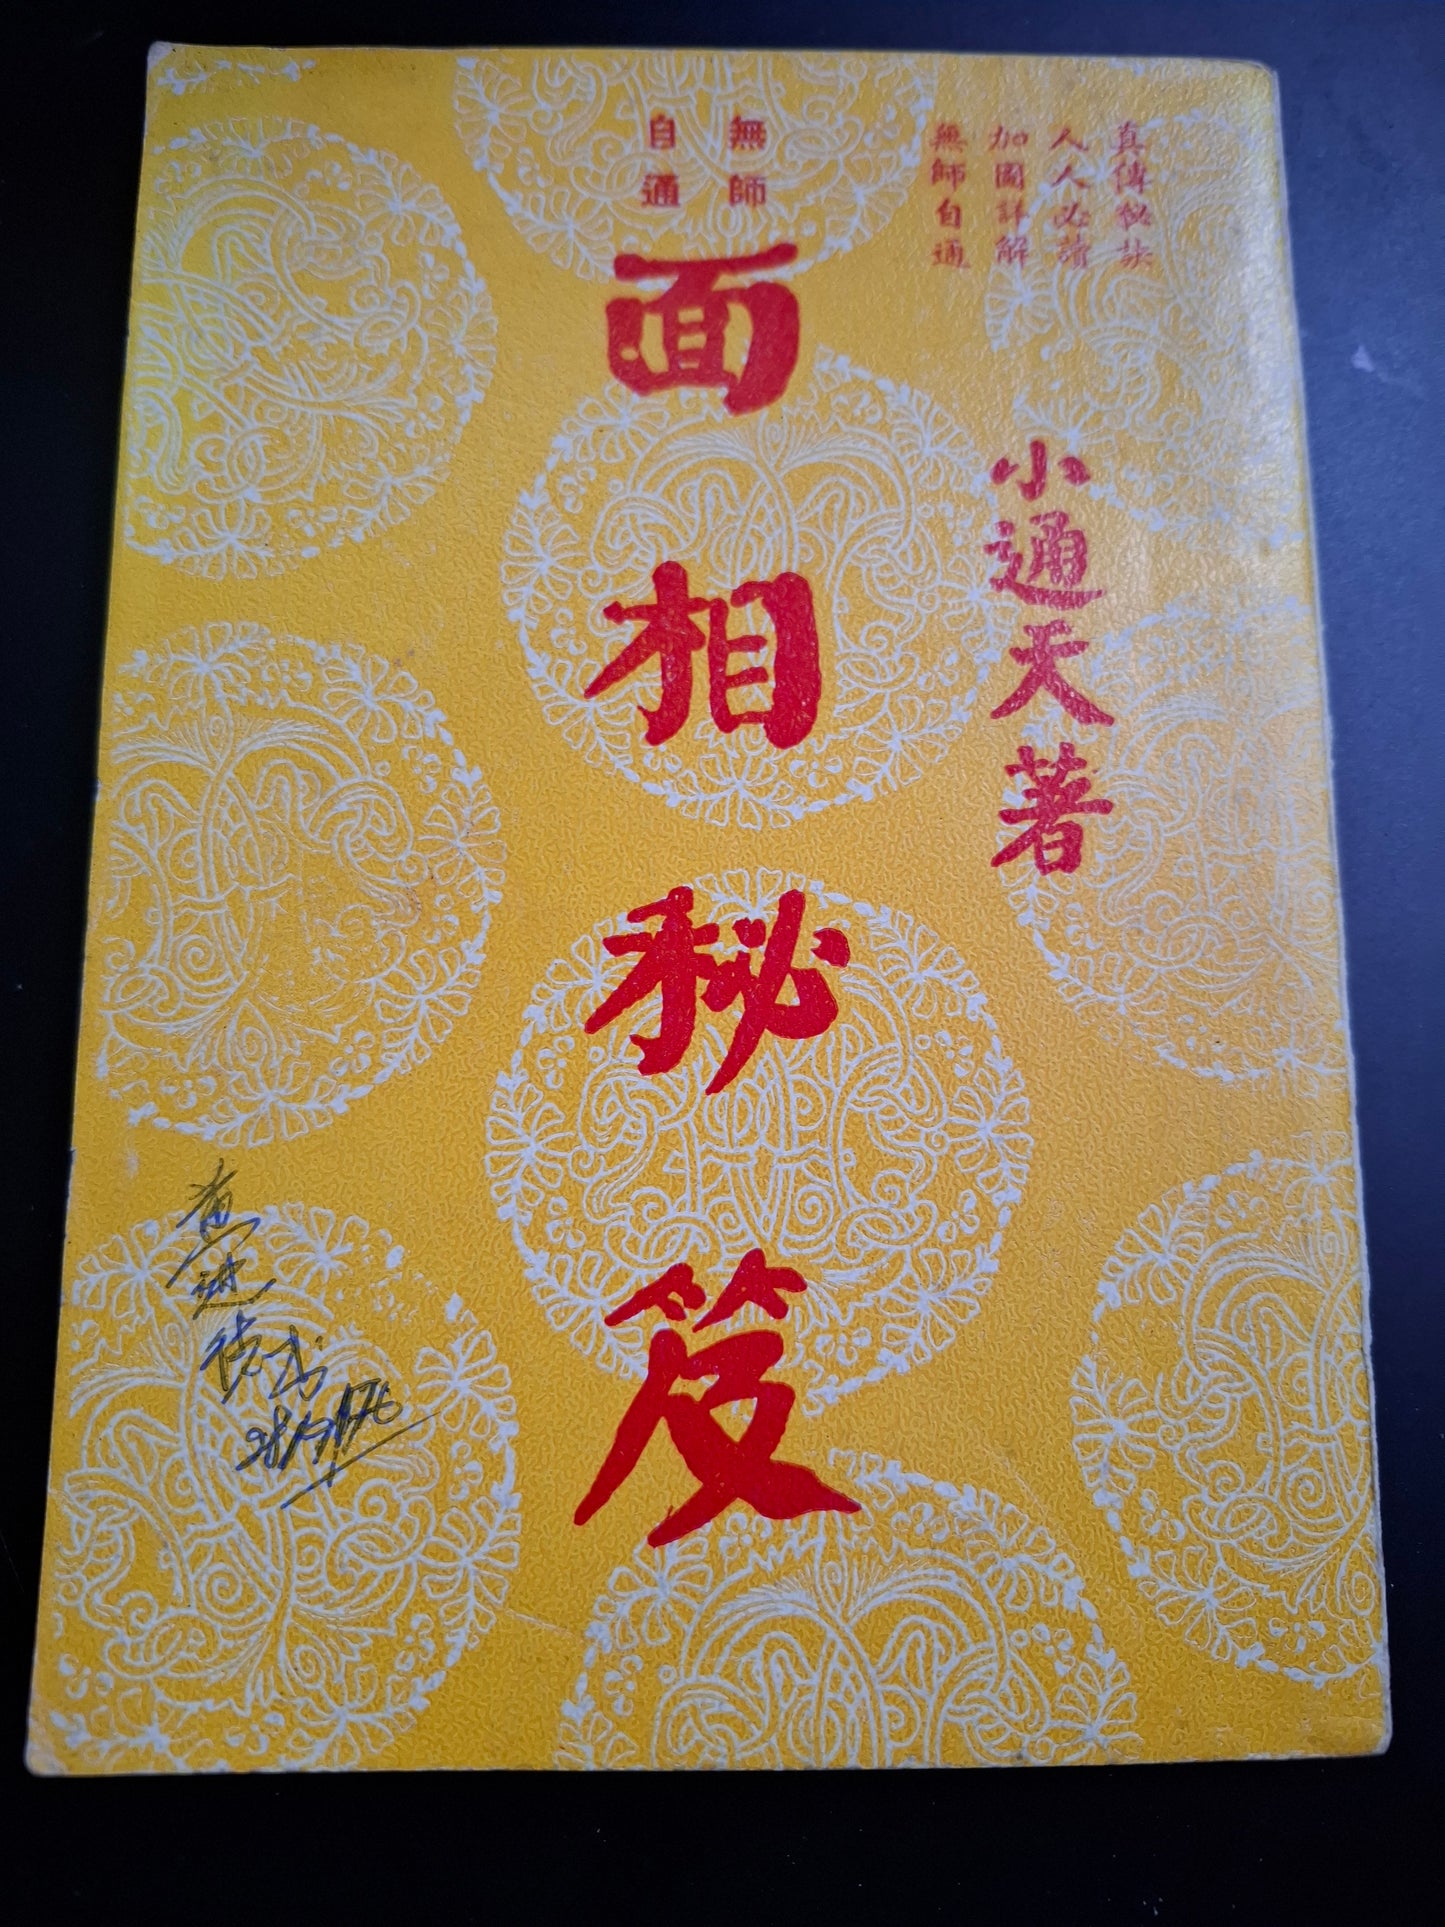 真傳秘訣
人人必讀
加圖詳解
無師自通
小通天著
無師
自通
面相秘笈